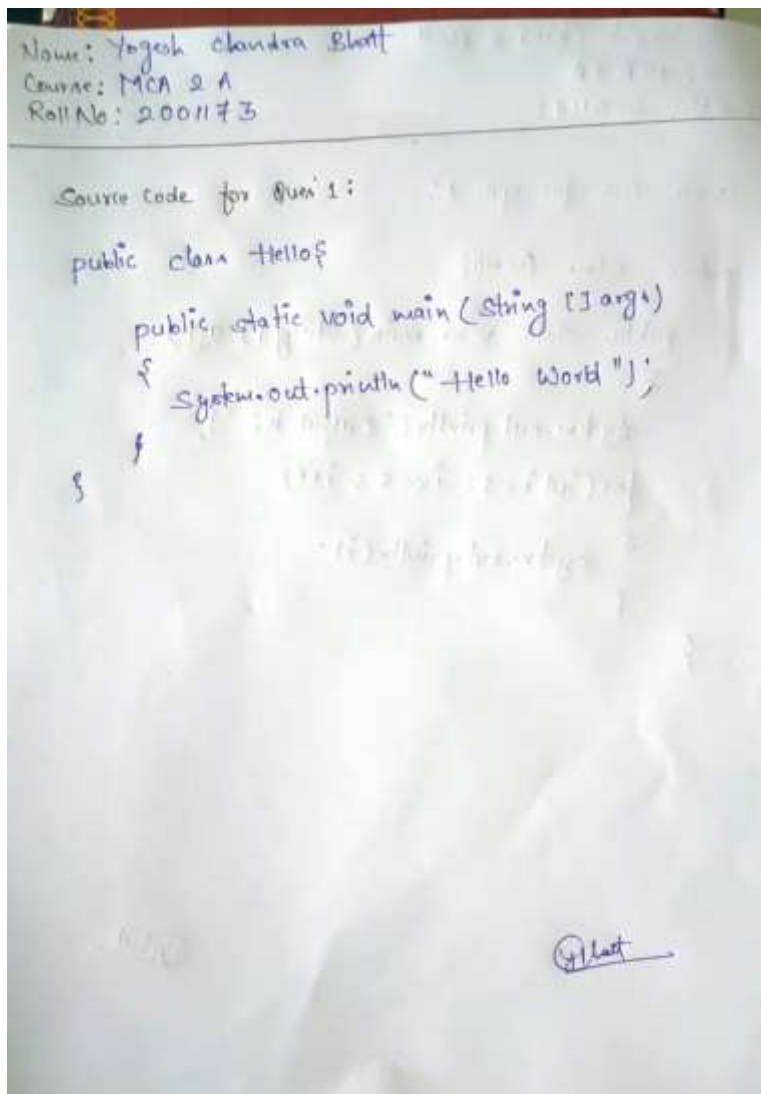 Name: Yogesh Chandra Bhatt
Course: MCA 2 A
Roll No: 2001173
Source Code for Ques 1:
public class Hello{
public static void main (String [] args)
{
System.out.println (" Hello World ");
}
}